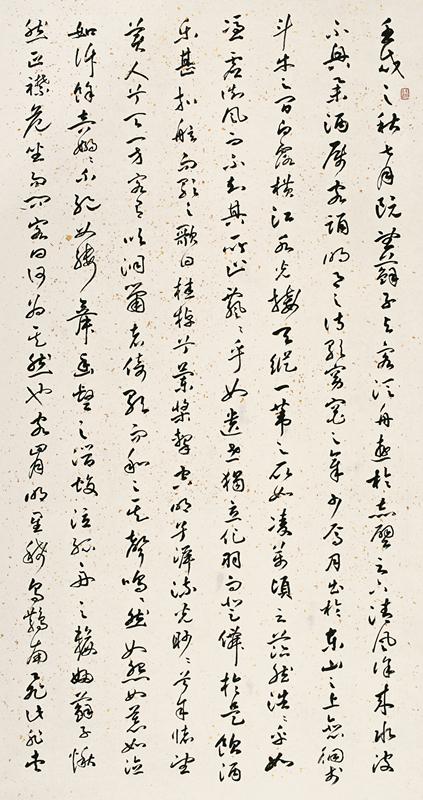 壬戌之秋七月既望蘇子與客泛舟遊於赤壁之下清風徐來水波
不興舉酒屬客誦明月之詩歌窈窕之章少焉月出於東山之上徘徊於
斗牛之間白露橫江水光接天縱一葦之所如凌萬頃之茫然浩浩乎如
馮虛御風而不知其所止飄飄乎如遺世獨立化羽而登僊於是飲酒
樂甚扣舷而歌之歌曰桂棹兮蘭槳擊空明兮泝流光眇眇兮予懷望
美人兮天一方客有吹洞簫者倚歌而和之其聲嗚嗚然如怨如慕如泣
如訴餘音嫋嫋不絕如縷舞幽壑之潛蛟泣孤舟之嫠婦蘇子愀
然正襟危坐而問客曰何為其然也客曰月明星稀烏鵲南飛此非孟